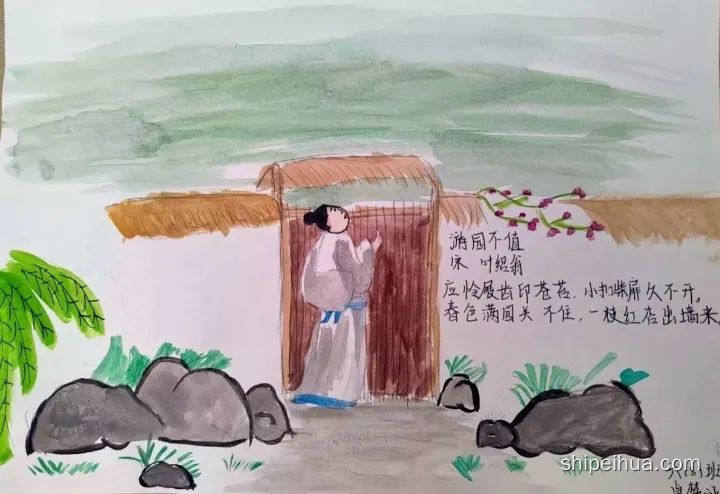 游园不值
宋 叶绍翁
应怜屐齿印苍苔,小扣柴扉久不开。
春色满园关 不住,一枝红杏出墙来
六(8)班
shipeihua.com